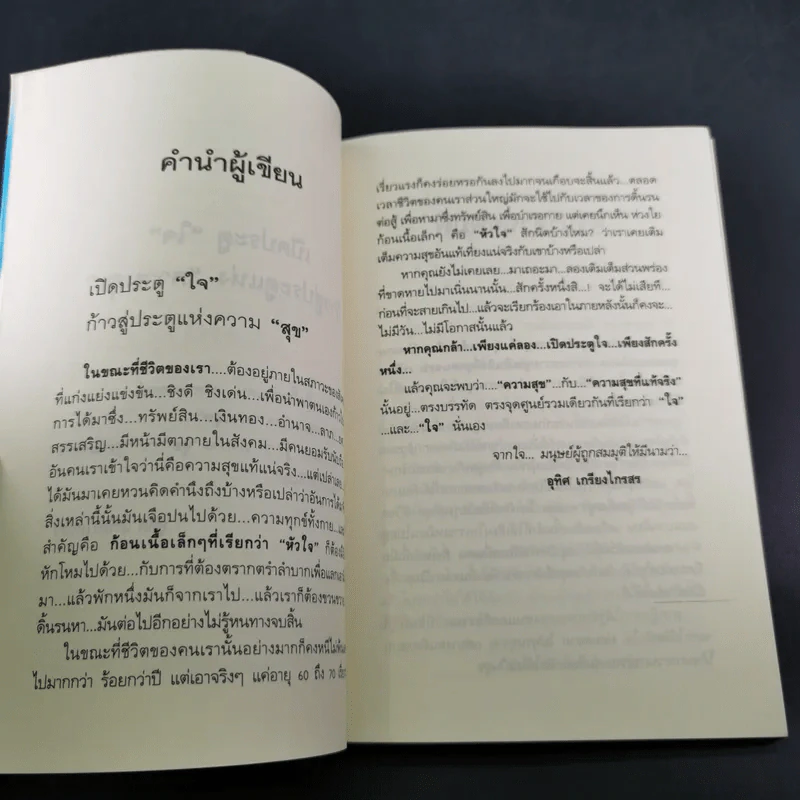 คำนำผู้เขียน
เปิดประตู “ใจ”
ก้าวสู่ประตูแห่งความ “สุข”
ในขณะที่ชีวิตของเรา...ต้องอยู่ภายในสภาวะของสังคม
ที่แก่งแย่งแข่งขัน...ชิงดี ชิงเด่น...เพื่อนำพาตนเองก้าวไป
การได้มาซึ่ง...ทรัพย์สิน...เงินทอง...อำนาจ...ลาภ...ยศ
สรรเสริญ...มีหน้ามีตาภายในสังคม...มีคนยอมรับนับถือ
อันคนเราเข้าใจว่านี่คือความสุขแท้แน่จริง...แต่เปล่าเลย
ได้มันมาเคยหวนคิดคำนึงถึงบ้างหรือเปล่าว่าอันการได้
สิ่งเหล่านี้นั้นมันเจือปนไปด้วย...ความทุกข์ทั้งกาย...
สำคัญคือ ก้อนเนื้อเล็กๆที่เรียกว่า “หัวใจ” ก็ต้อง
หักโหมไปด้วย...กับการที่ต้องตรากตรำลำบากเพื่อแลก
มา...แล้วพักหนึ่งมันก็จากเราไป...แล้วเราก็ต้องขวนขวาย
ดิ้นรนหา...มันต่อไปอีกอย่างไม่รู้หนทางจบสิ้น
ในขณะที่ชีวิตของคนเรานั้นอย่างมากก็คงหนีไม่พ้น
ไปมากกว่า ร้อยกว่าปี แต่เอาจริงๆ แค่อายุ 60 ถึง 70
เรี่ยวแรงก็คงร่อยหรอกันลงไปมากจนเกือบจะสิ้นแล้ว...ตลอด
เวลาชีวิตของคนเราส่วนใหญ่มักจะใช้ไปกับเวลาของการดิ้นรน
ต่อสู้ เพื่อหามาซึ่งทรัพย์สิน เพื่อบำเรอกาย แต่เคยนึกเห็น ห่วงใย
ก้อนเนื้อเล็กๆ คือ “หัวใจ” สักนิดบ้างไหม? ว่าเราเคยเติม
เต็มความสุขอันแท้เที่ยงแน่จริงกับเขาบ้างหรือเปล่า
หากคุณยังไม่เคยเลย...มาเถอะมา...ลองเติมเต็มส่วนพร่อง
ที่ขาดหายไปมาเนิ่นนานนั้น...สักครั้งหนึ่งสิ...! จะได้ไม่เสียที...
ก่อนที่จะสายเกินไป...แล้วจะเรียกร้องเอาในภายหลังนั้นก็คงจะ...
ไม่มีวัน...ไม่มีโอกาสนั้นแล้ว
หากคุณกล้า...เพียงแค่ลอง...เปิดประตูใจ...เพียงสักครั้ง
หนึ่ง...
แล้วคุณจะพบว่า....“ความสุข”...กับ...“ความสุขที่แท้จริง”
นั้นอยู่...ตรงบรรทัด ตรงจุดศูนย์รวมเดียวกันที่เรียกว่า “ใจ”
...และ...“ใจ” นั่นเอง
จากใจ... มนุษย์ผู้ถูกสมมุติให้มีนามว่า...
อุทิศ เกรียงไกรสร